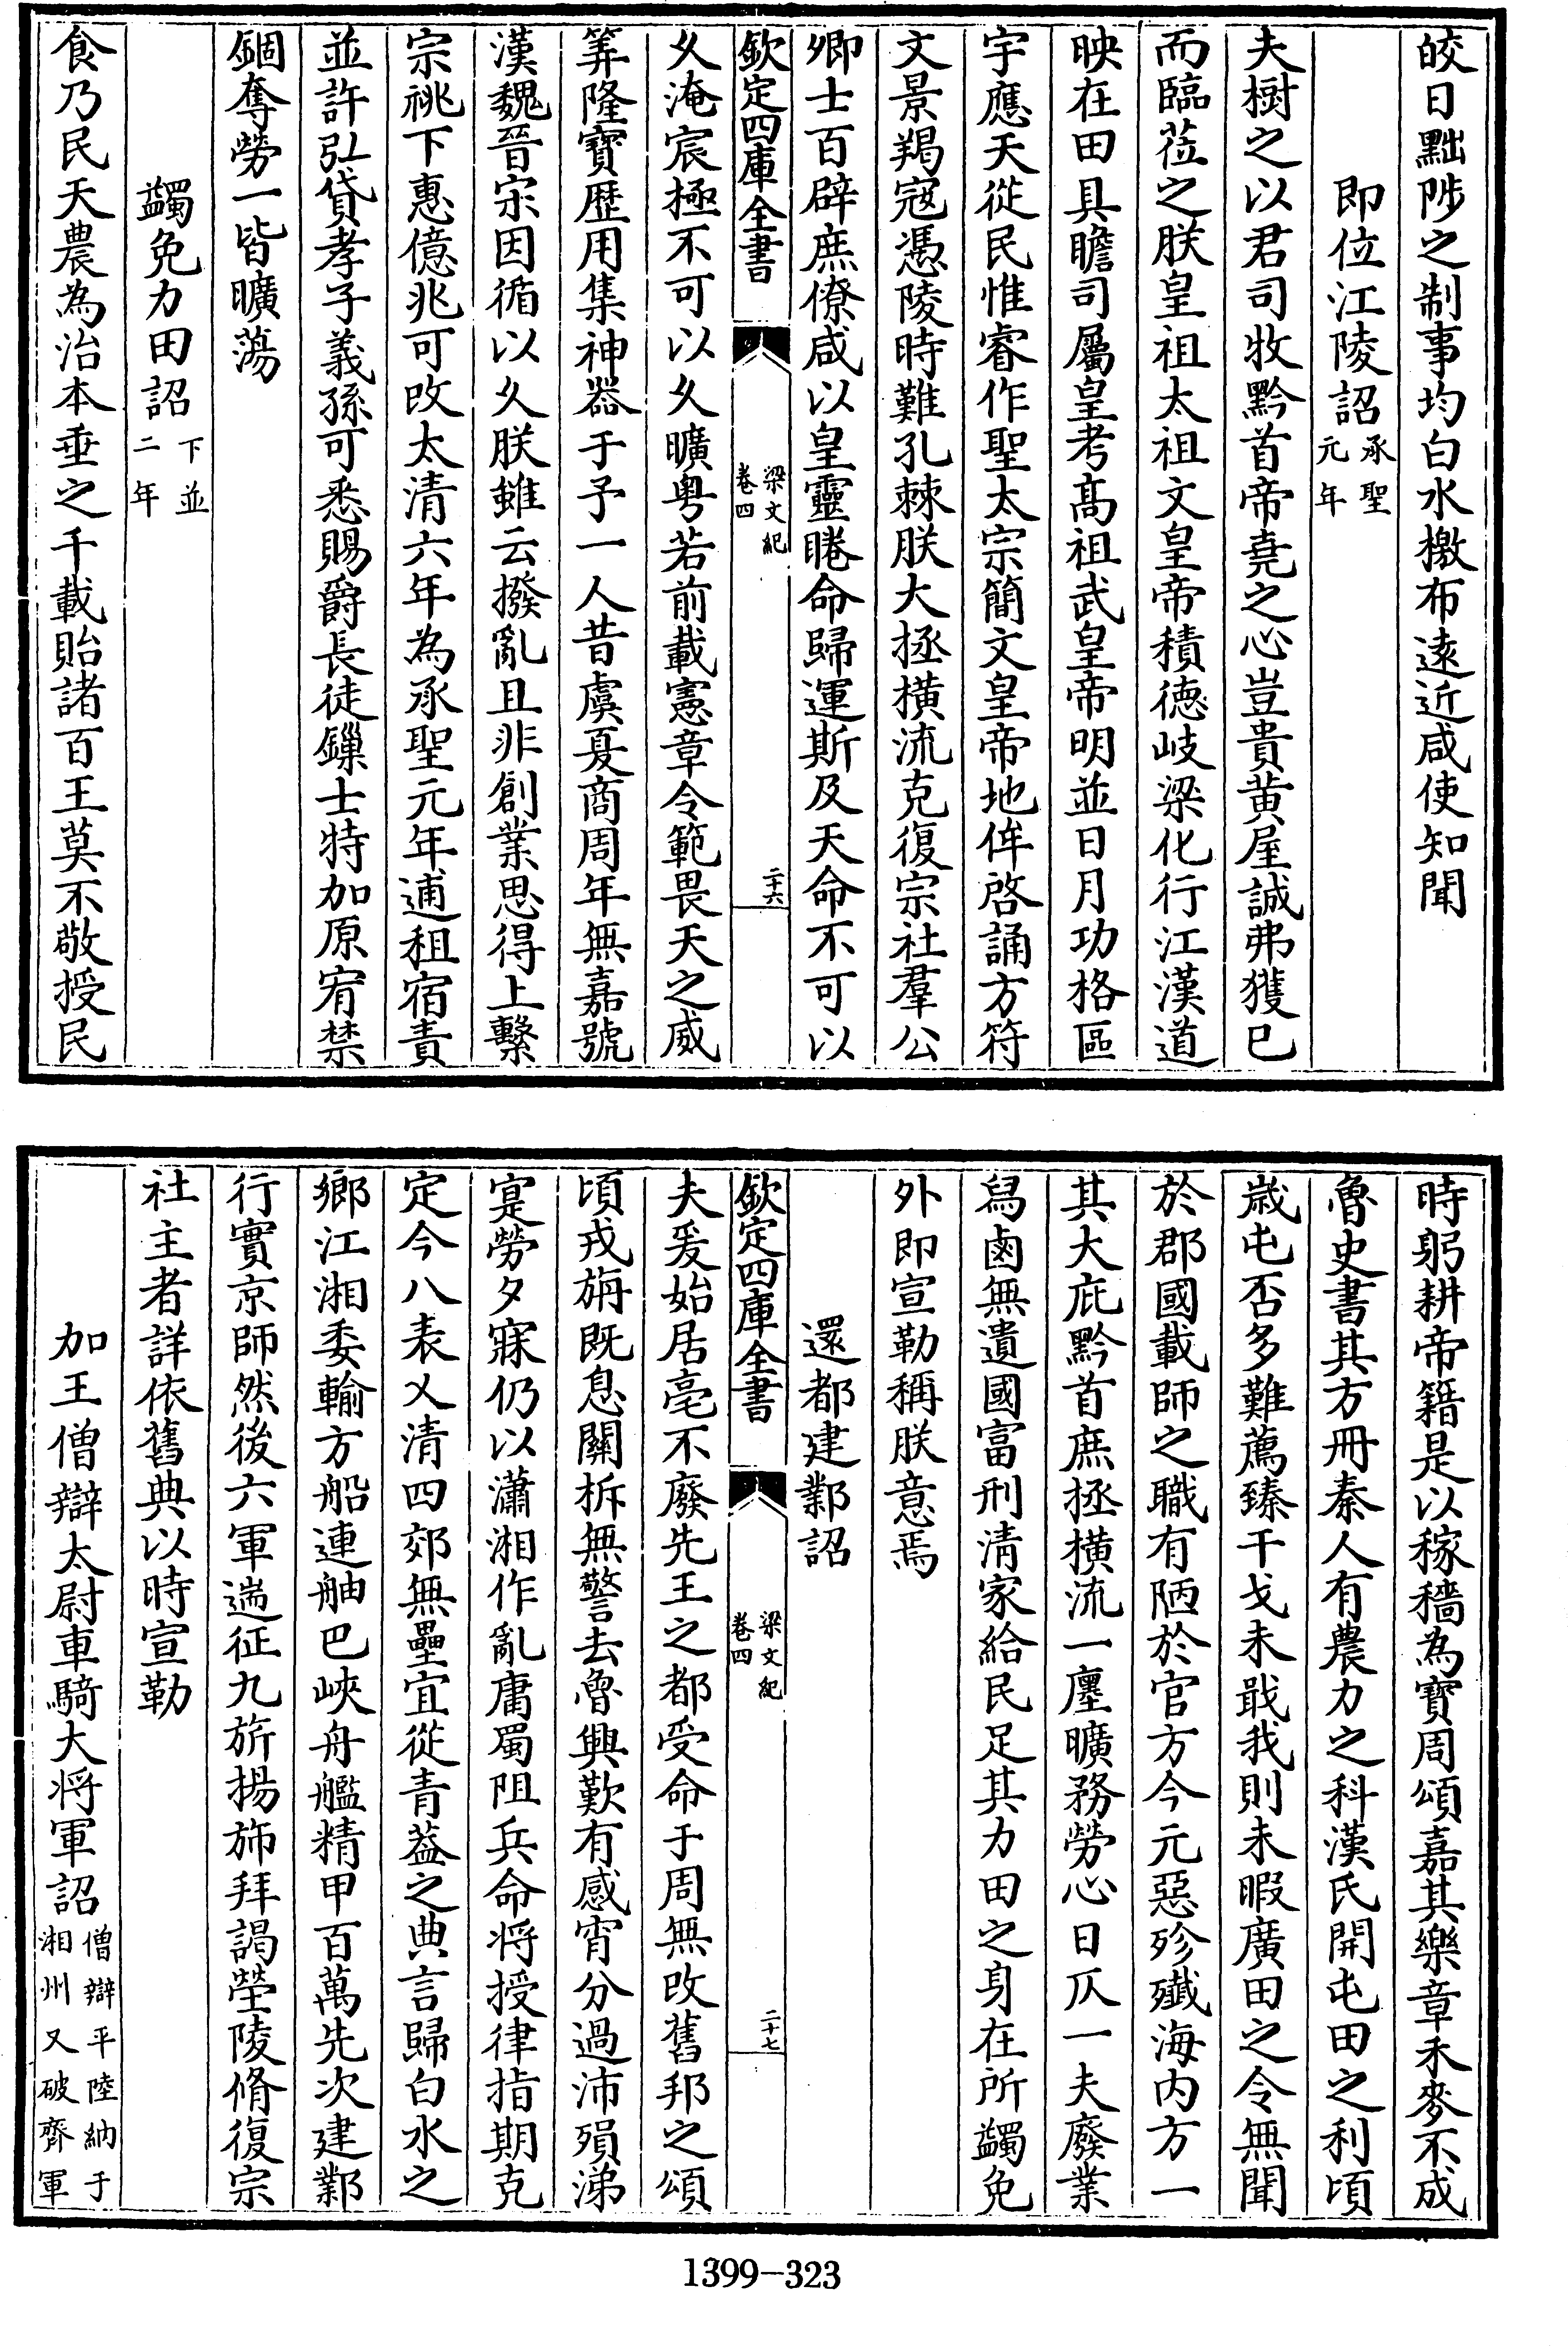 皎日黜陟之制事均白水檄布遠近咸使知聞
即位江陵詔承聖元年
夫樹之以君司牧黔首帝堯之心豈貴黄屋誠弗獲已
而臨莅之朕皇祖太祖文皇帝積徳岐梁化行江漢道
映在田具瞻司屬皇考髙祖武皇帝明並日月功格區
宇應天從民惟睿作聖太宗簡文皇帝地侔啓誦方符
文景羯寇憑陵時難孔棘朕大拯横流克復宗社羣公
卿士百辟庶僚咸以皇靈睠命歸運斯及天命不可以
欽定四庫全書
梁文紀
卷四
二十六
乆淹宸極不可以乆曠粤若前載憲章令範畏天之威
筭隆寶歴用集神器于予一人昔虞夏商周年無嘉號
漢魏晉宋因循以乆朕雖云撥亂且非創業思得上繫
宗祧下惠億兆可改太清六年為承聖元年逋租宿責
並許弘貸孝子義孫可悉賜爵長徒鏁士特加原宥禁
錮奪勞一皆曠蕩
蠲免力田詔下並二年
食乃民天農為治本垂之千載貽諸百王莫不敬授民
時躬耕帝籍是以稼穡為寶周頌嘉其樂章禾麥不成
魯史書其方冊秦人有農力之科漢氏開屯田之利頃
嵗屯否多難薦臻干戈未戢我則未暇廣田之令無聞
於郡國載師之職有陋於官方今元惡殄殱海内方一
其大庇黔首庶拯横流一廛曠務勞心日仄一夫廢業
舄鹵無遺國富刑清家給民足其力田之身在所蠲免
外即宣勒稱朕意焉
還都建鄴詔
欽定四庫全書
梁文紀
卷四
二十七
夫爰始居亳不廢先王之都受命于周無改舊邦之頌
頃戎旃既息關柝無警去魯興歎有感宵分過沛殞涕
寔勞夕寐仍以瀟湘作亂庸蜀阻兵命将授律指期克
定今八表乂清四郊無壘宜從青葢之典言歸白水之
鄉江湘委輸方船連舳巴峽舟艦精甲百萬先次建鄴
行實京師然後六軍遄征九旂揚斾拜謁塋陵脩復宗
社主者詳依舊典以時宣勒
加王僧辯太尉車騎大将軍詔僧辯平陸納于湘州又破齊軍
1399-323